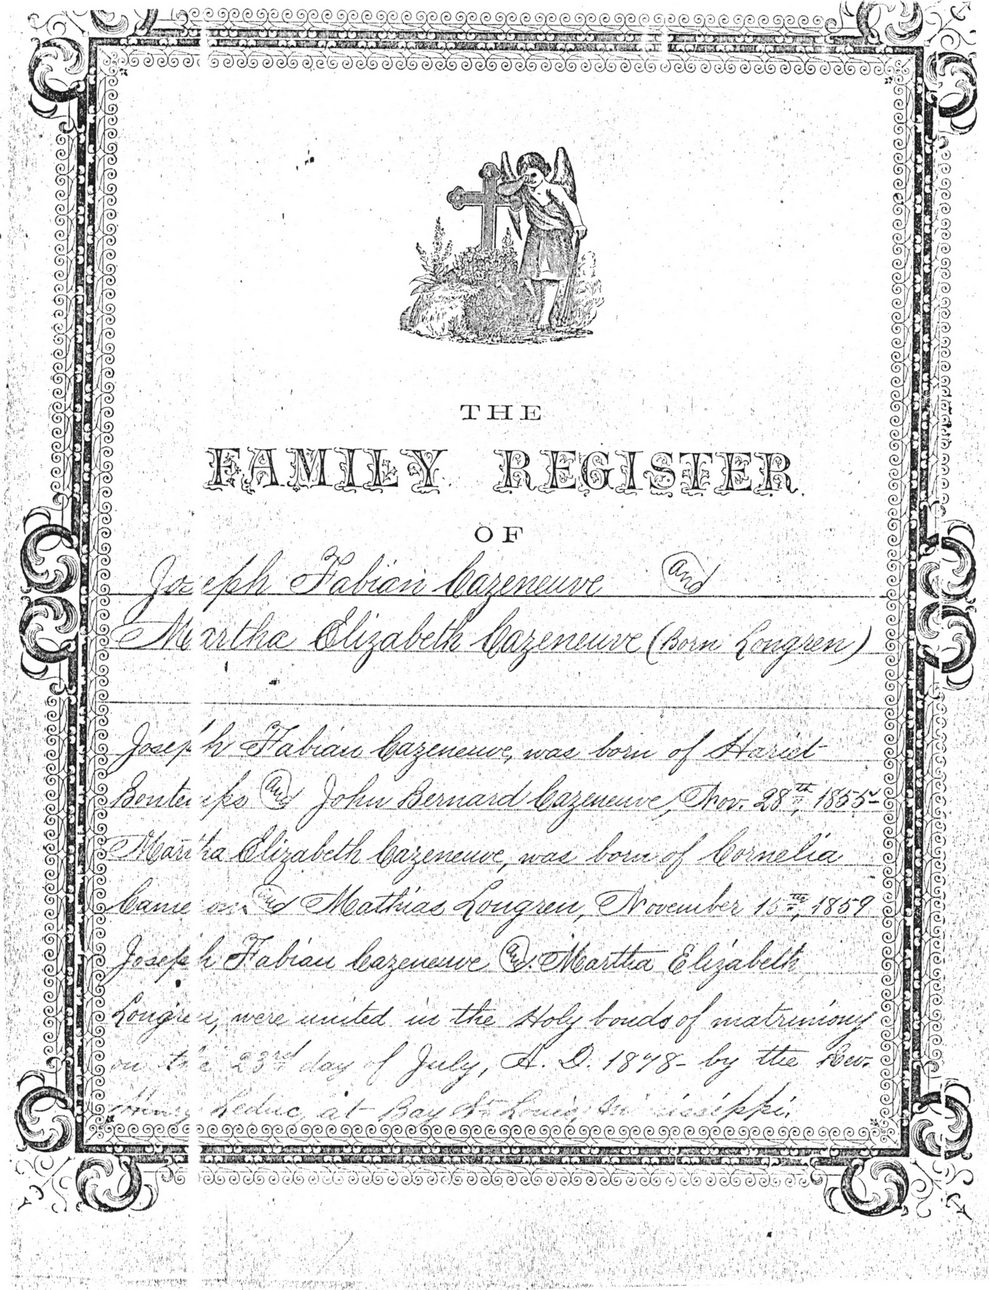 THE
FAMILY REGISTER.
OF
Joseph Fabian Cazeneuve and
Martha Elizabeth Cazeneuve (Born Longren)
Joseph Fabian Cazeneuve, was born of Hariet
Bontemps and John Bernard Cazeneuve, Nov. 28th, 1855-
Martha Elizabeth Cazeneuve, was born of Cornelia
Cameron and Mathias Longren, November 15th, 1859
Joseph Fabian Cazeneuve and Martha Elizabeth
Longren, were united in the Holy bonds of matrimony
on the 23rd day of July, A. D. 1878- by the Rev.
Leduc, at Bay St. Louis, Mississippi.